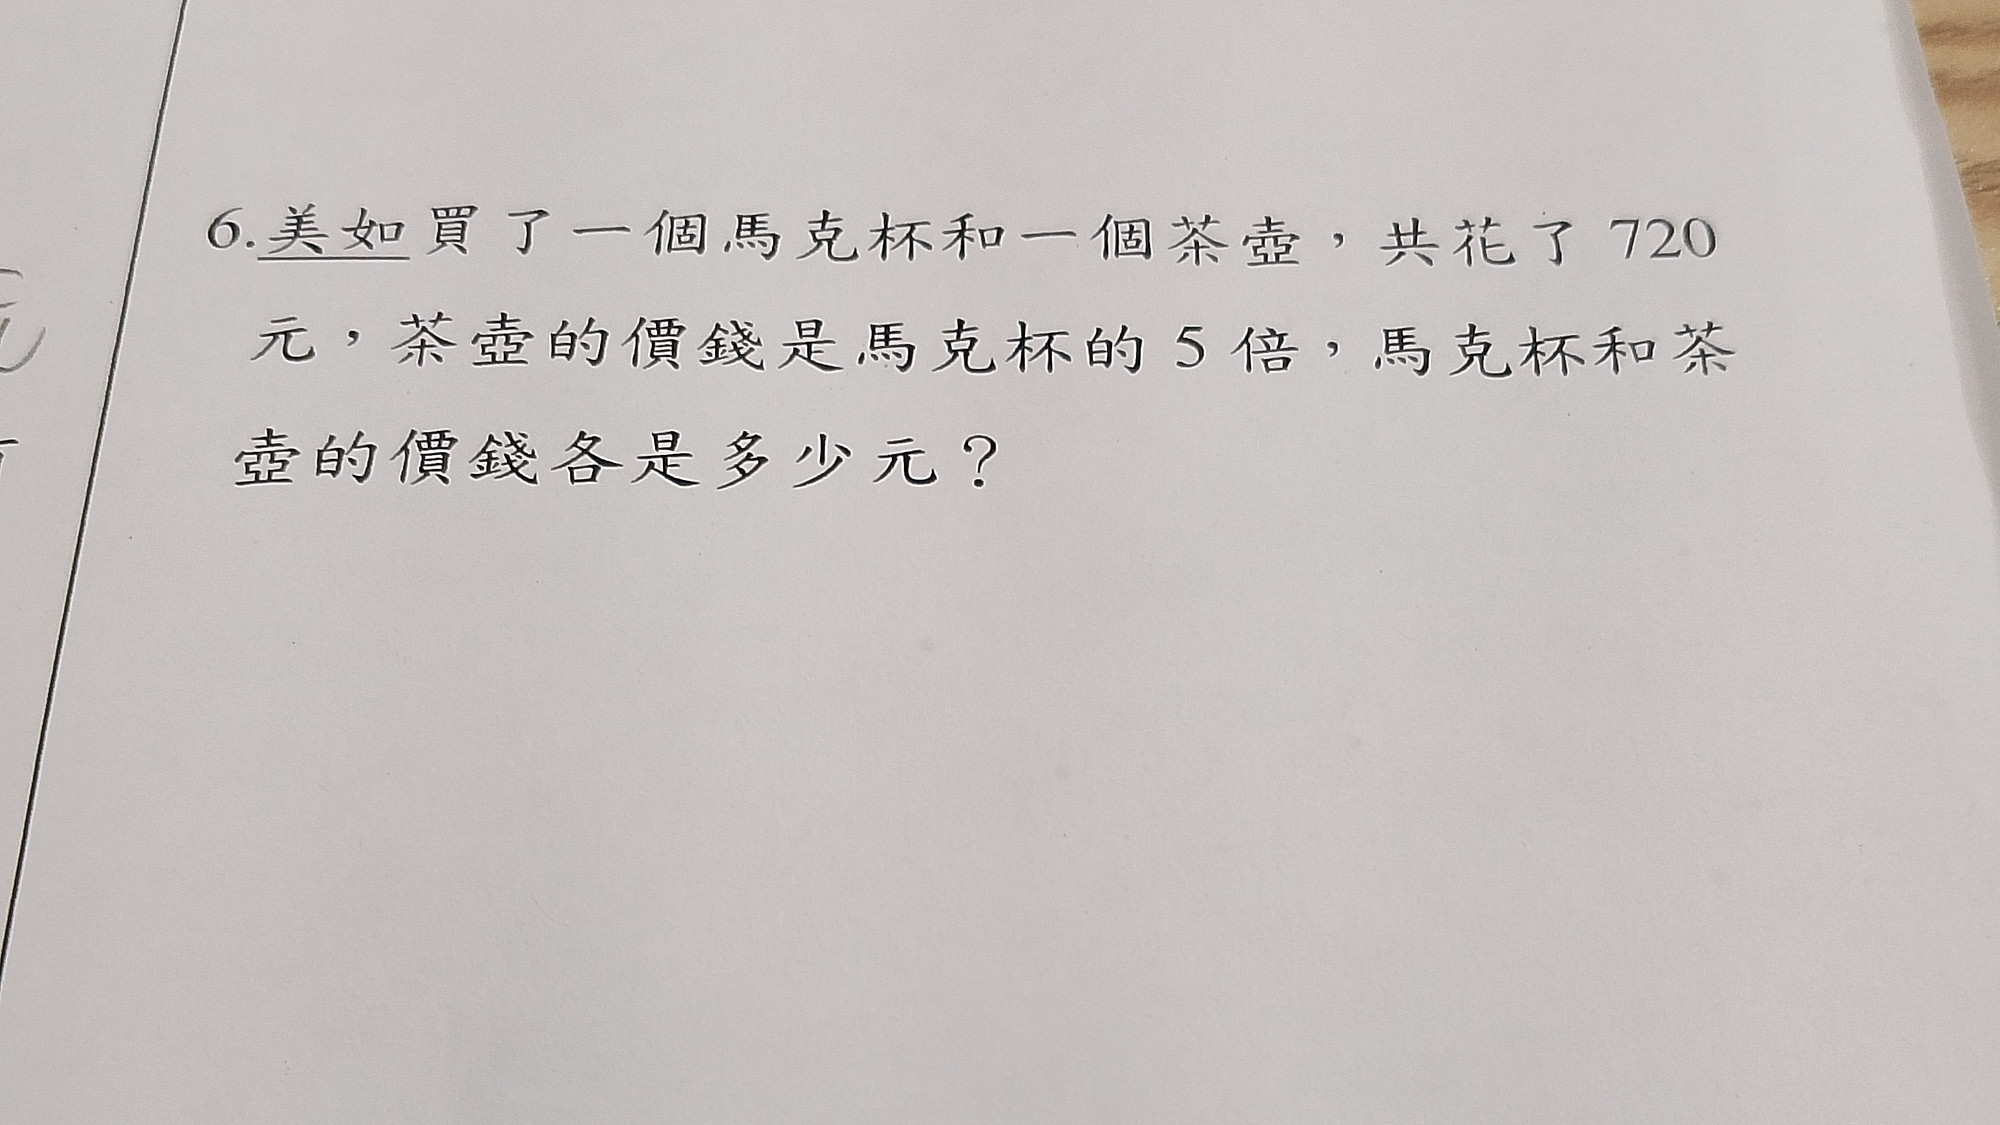 6.美如買了一個馬克杯和一個茶壺，共花了 720
元，茶壺的價錢是馬克杯的 5 倍，馬克杯和茶
壺的價錢各是多少元？